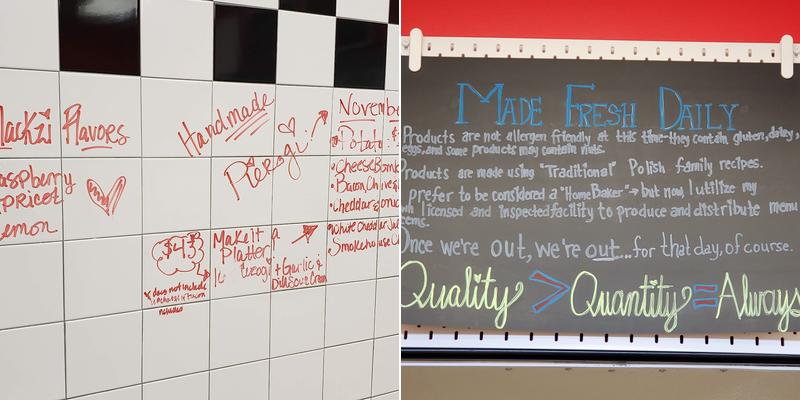 Flavors
Raspberry
Apricot
Lemon
Handmade
Pierogi
$43
Make it a
Platter
+ Garlic &
Dill Sour Cream
Potato
Cheese Bomb
Bacon
Cheddar
White Cheddar
Smokehouse
MADE FRESH DAILY
Products are not allergen friendly at this time-they contain gluten, dairy,
eggs, and some products may contain nuts.
Products are made using "Traditional" Polish family recipes.
prefer to be considered a "Home Baker" → but now, I utilize my
own licensed and inspected facility to produce and distribute menu
items.
Once we're out, we're out...for that day, of course.
Quality > Quantity = Always